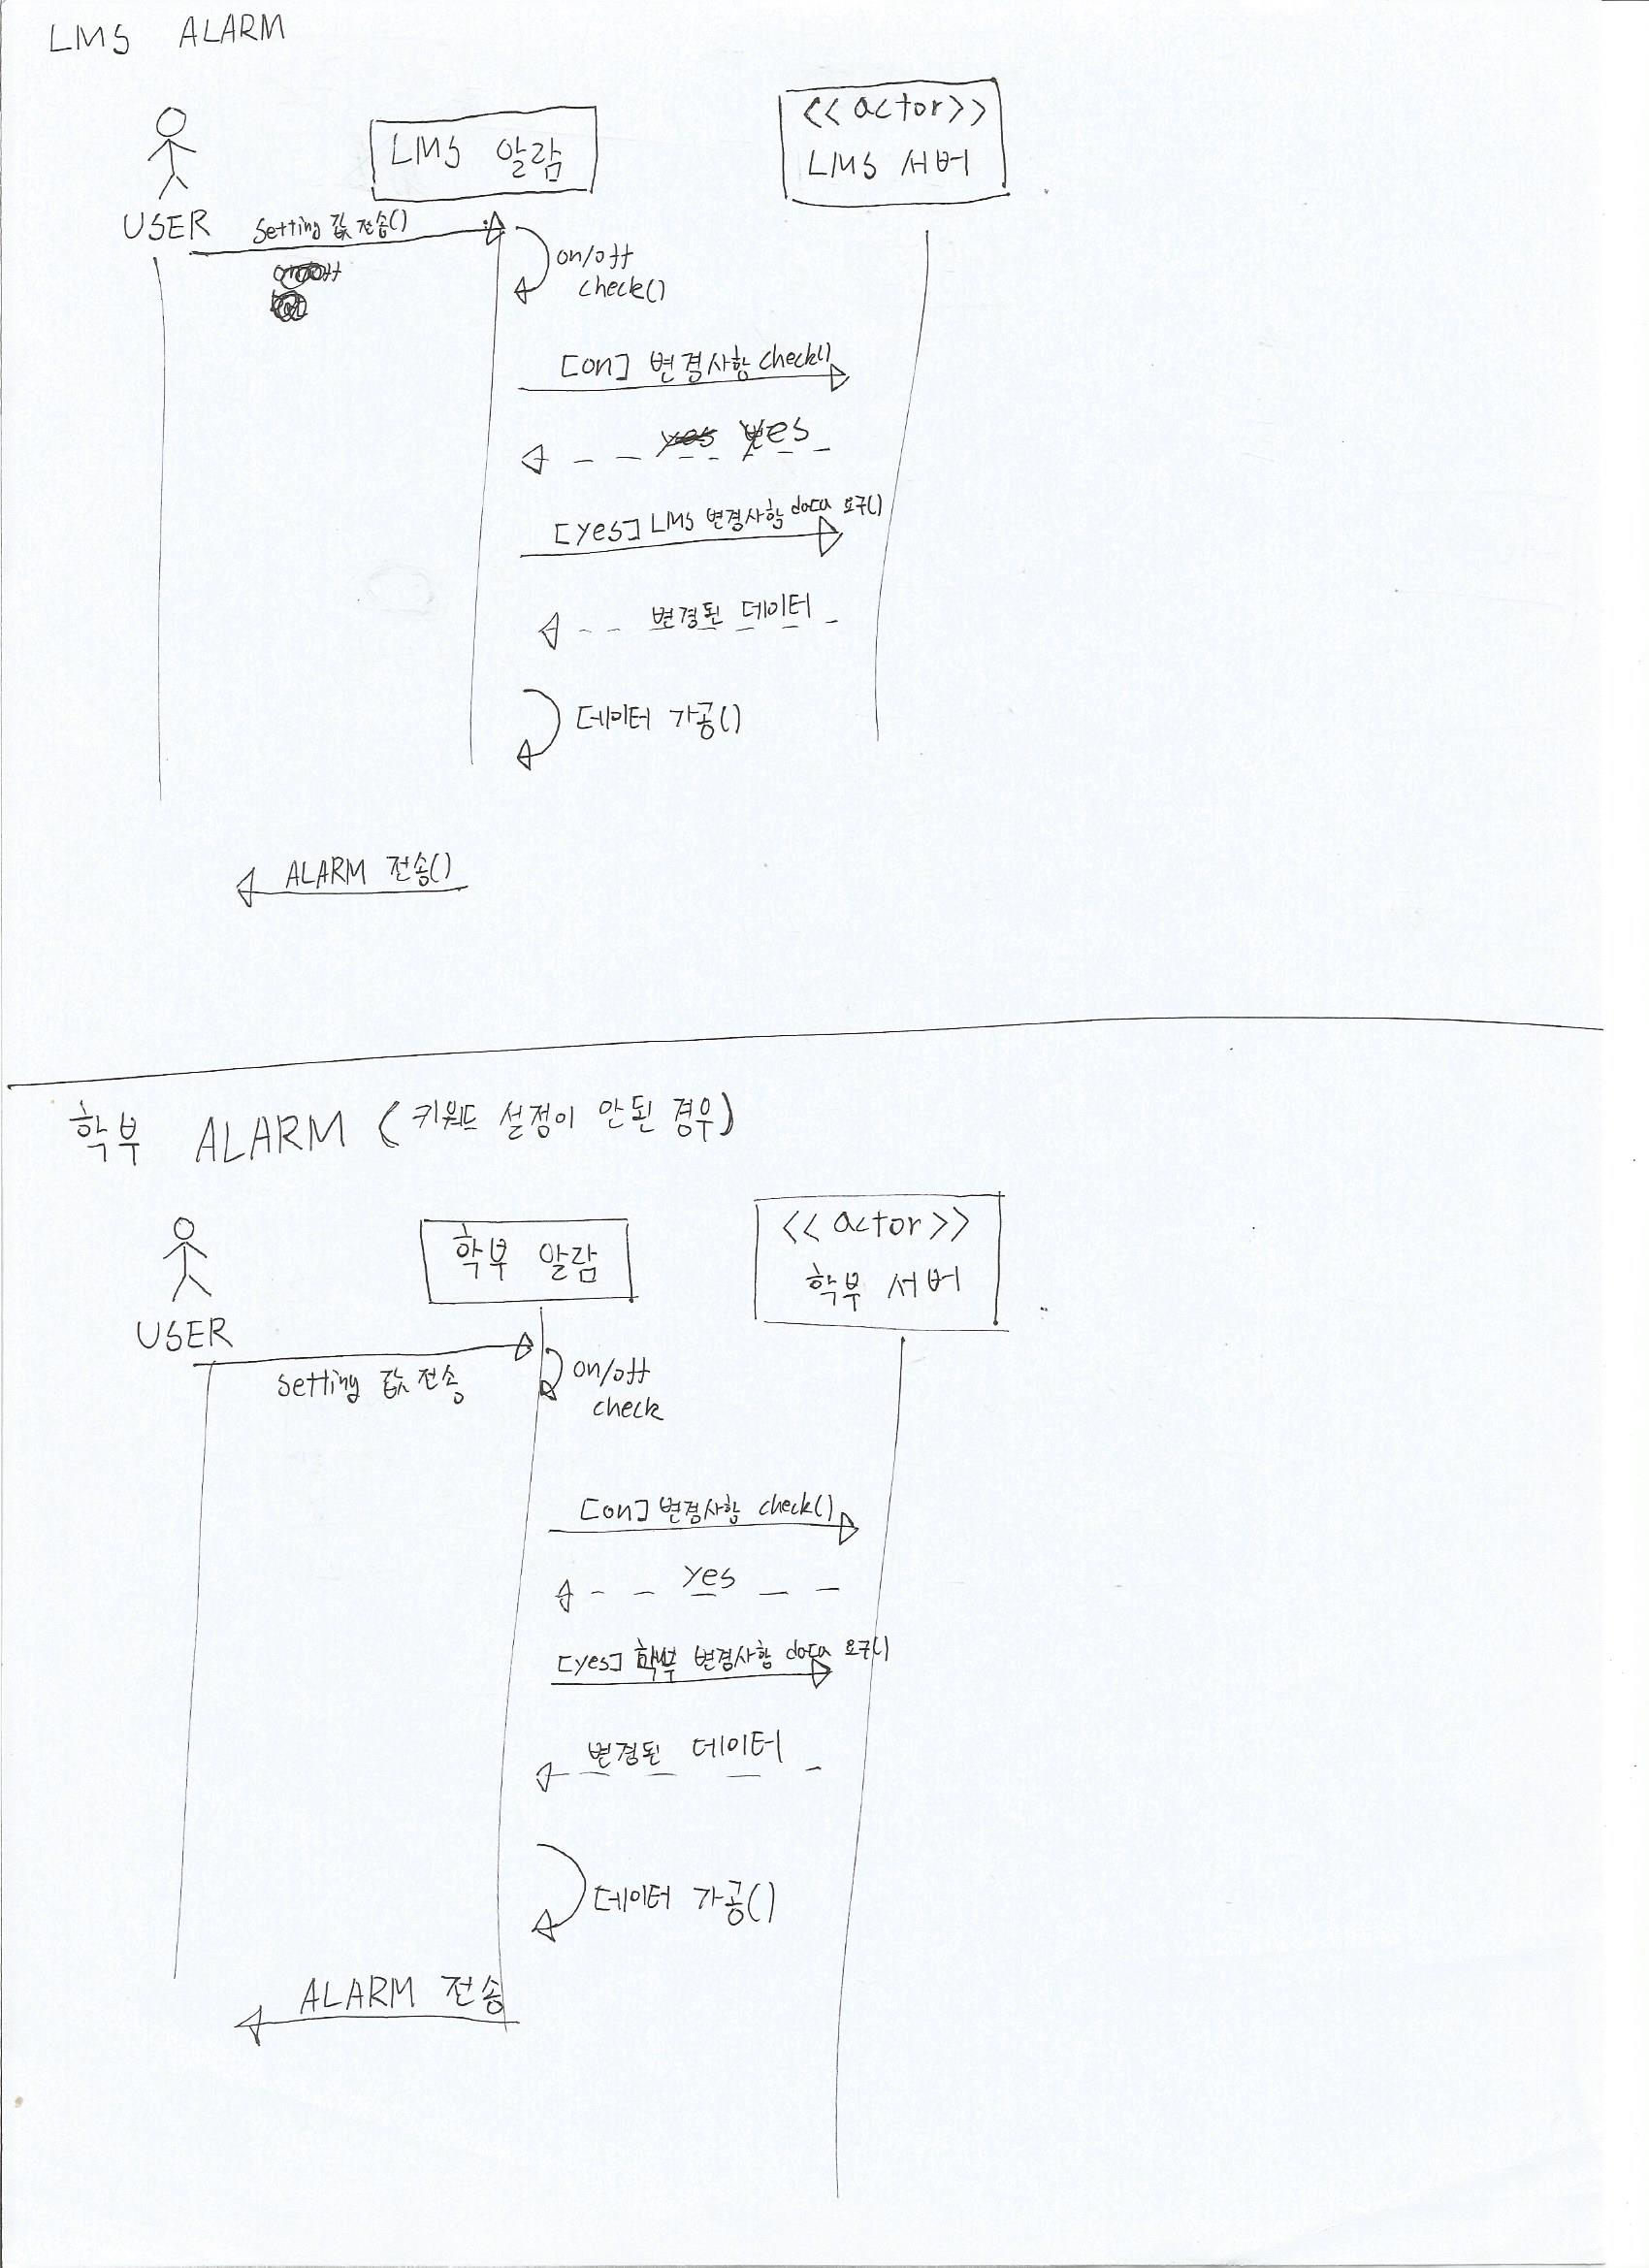 LMS ALARM
USER
LMS 알람
<<actor>>
LMS 서버
Setting 값 전송()
on/off
check()
[on] 변경사항 check()
yes
[yes] LMS 변경사항 data 요구()
변경된 데이터
데이터 가공()
ALARM 전송()
학부 ALARM (키워드 설정이 안된 경우)
USER
학부 알람
<<actor>>
학부 서버
setting 값 전송
on/off
check
[on] 변경사항 check()
yes
[yes] 학부 변경사항 data 요구()
변경된 데이터
데이터 가공()
ALARM 전송